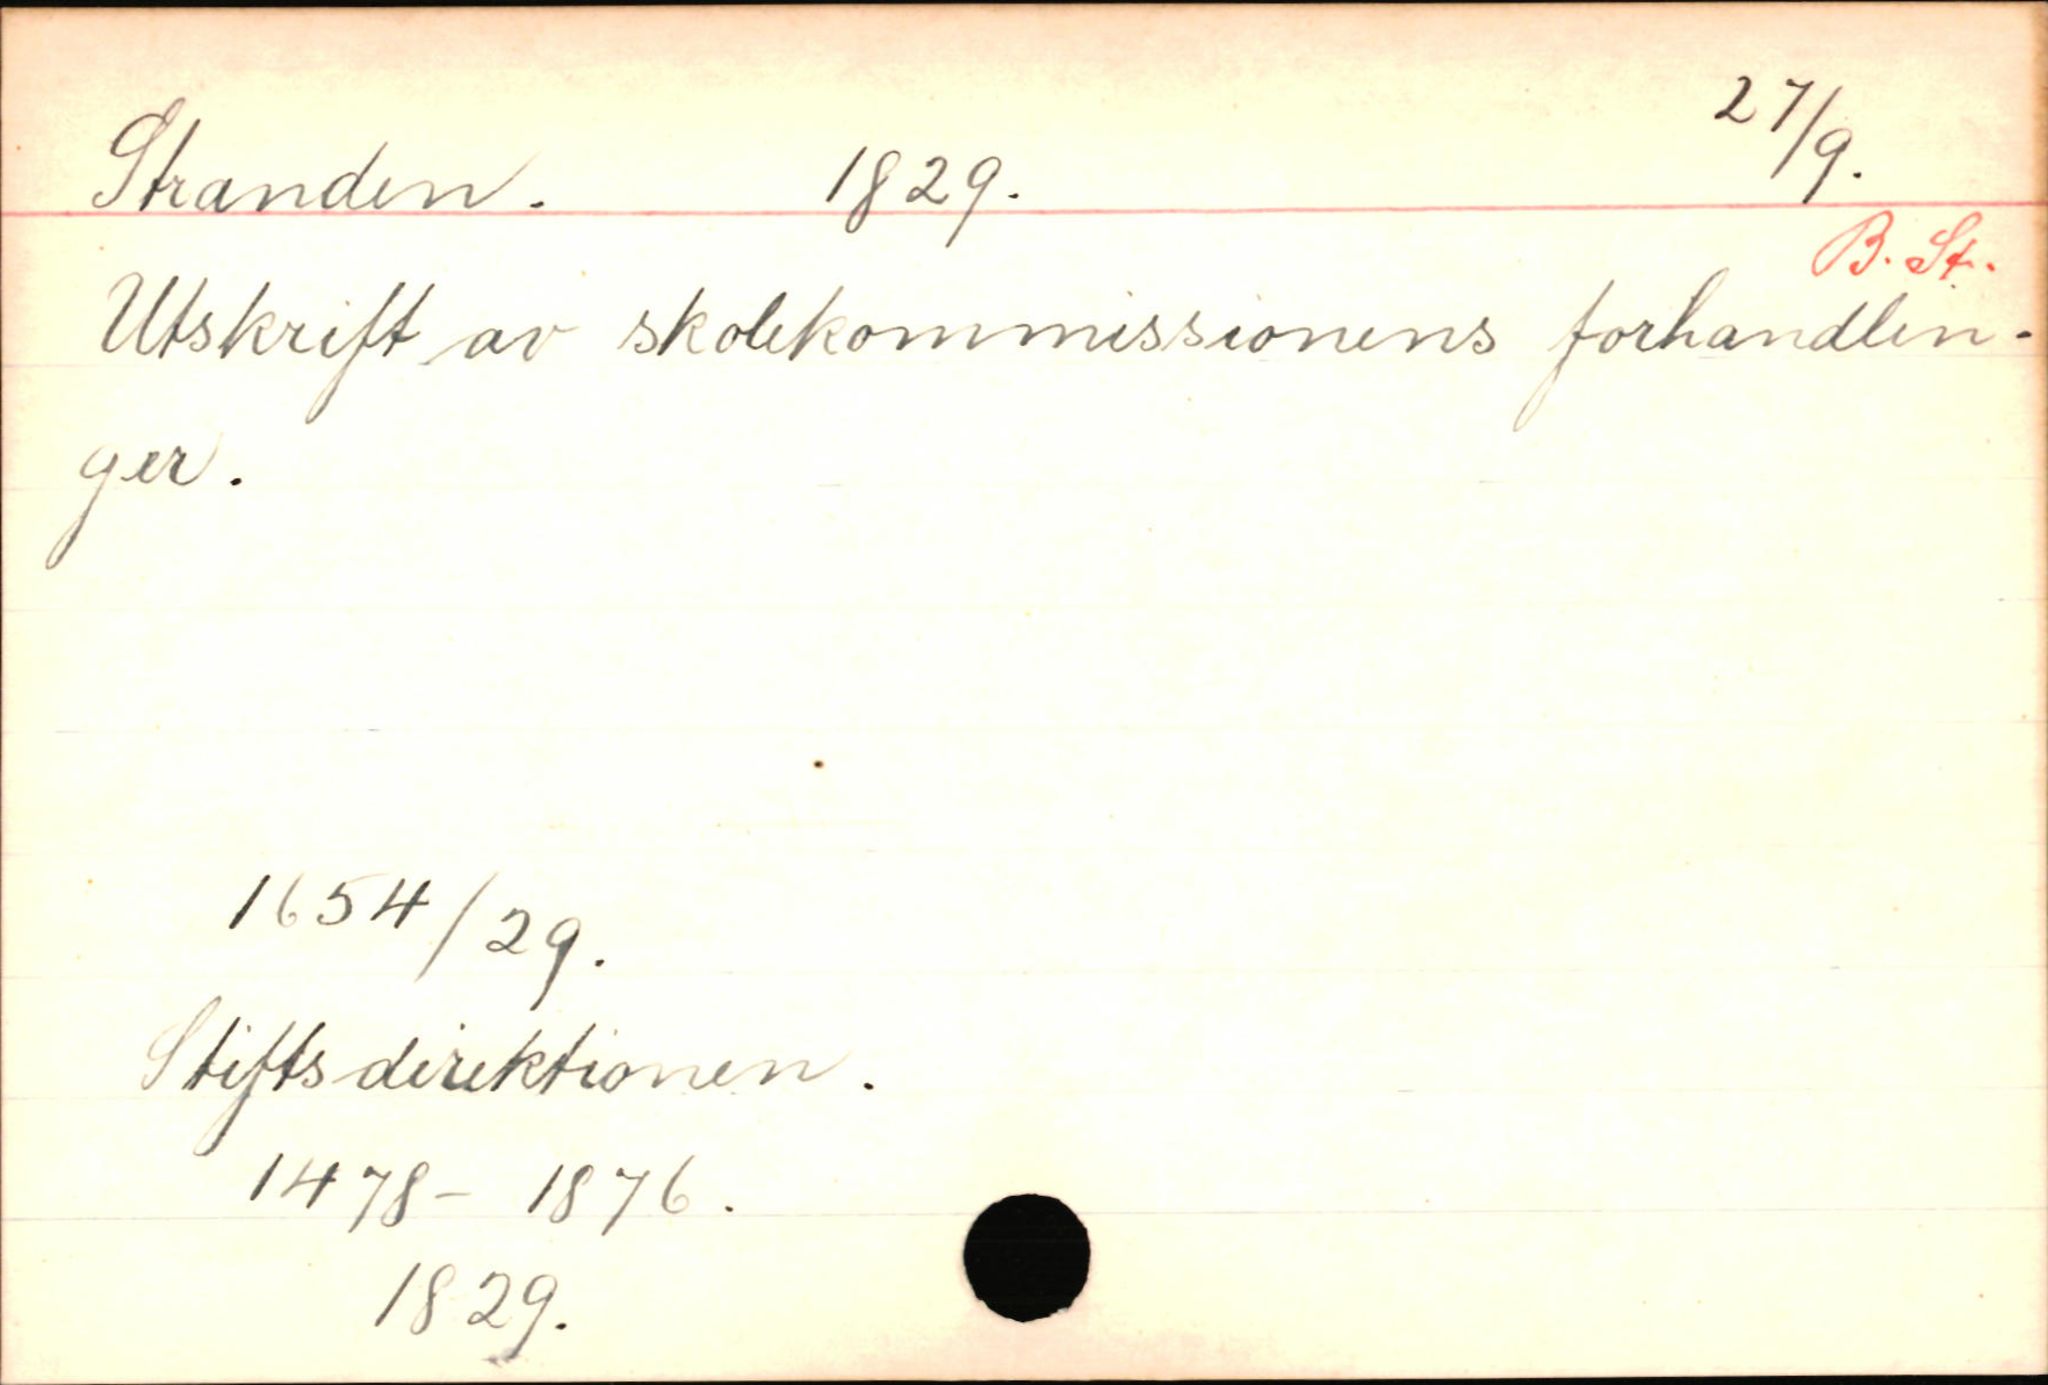 Stranden. 1829. 27/9.
B. St.
Utskrift av skolekommissionens forhandlin-
ger.
1654/29.
Stiftsdirektionen.
1478- 1876.
1829.